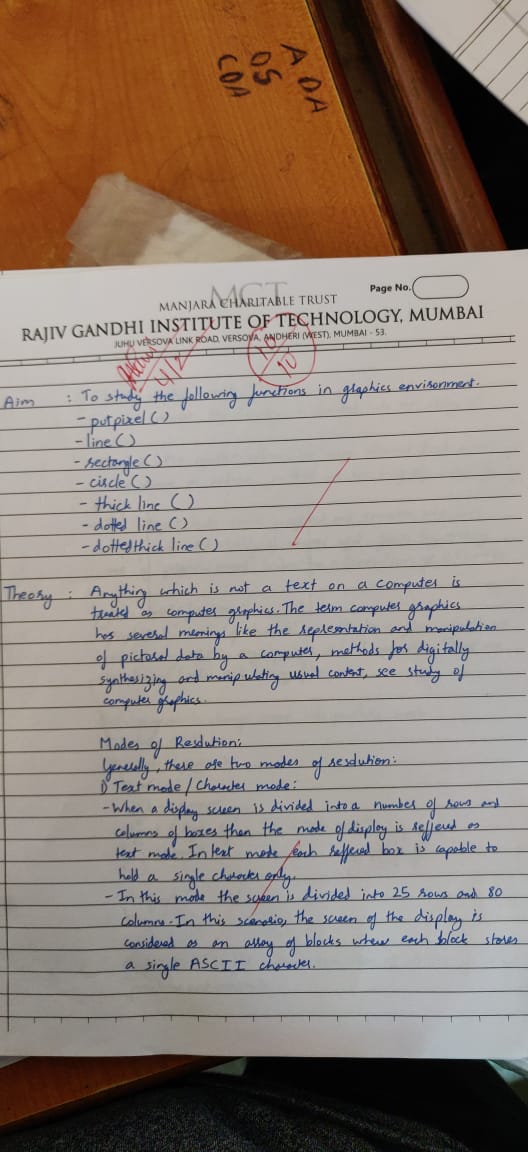 A DA
OS
COA
MCT
MANJARA CHARITABLE TRUST
Page No.
RAJIV GANDHI INSTITUTE OF TECHNOLOGY, MUMBAI
JUHU VERSOVA LINK ROAD, VERSOVA, ANDHERI (WEST), MUMBAI - 53.
4/2
10/10
Aim : To study the following functions in graphics environment.
- putpixel ( )
- line ( )
- rectangle ( )
- circle ( )
- thick line ( )
- dotted line ( )
- dotted thick line ( )
Theory : Anything which is not a text on a computer is
treated as computer graphics. The term computer graphics
has several menings like the representation and manipulation
of pictoral data by a computer, methods for digitally
synthesizing and manipulating usual content, see study of
computer graphics.
Modes of Resolution:
Generally, there are two modes of resolution:
1) Text mode / Character mode:
- When a display screen is divided into a number of rows and
columns of boxes then the mode of display is reffered as
text mode. In text mode each reffered box is capable to
hold a single character only.
- In this mode the screen is divided into 25 rows and 80
columns. In this scenario, the screen of the display is
considered as an array of blocks where each block stores
a single ASCII character.